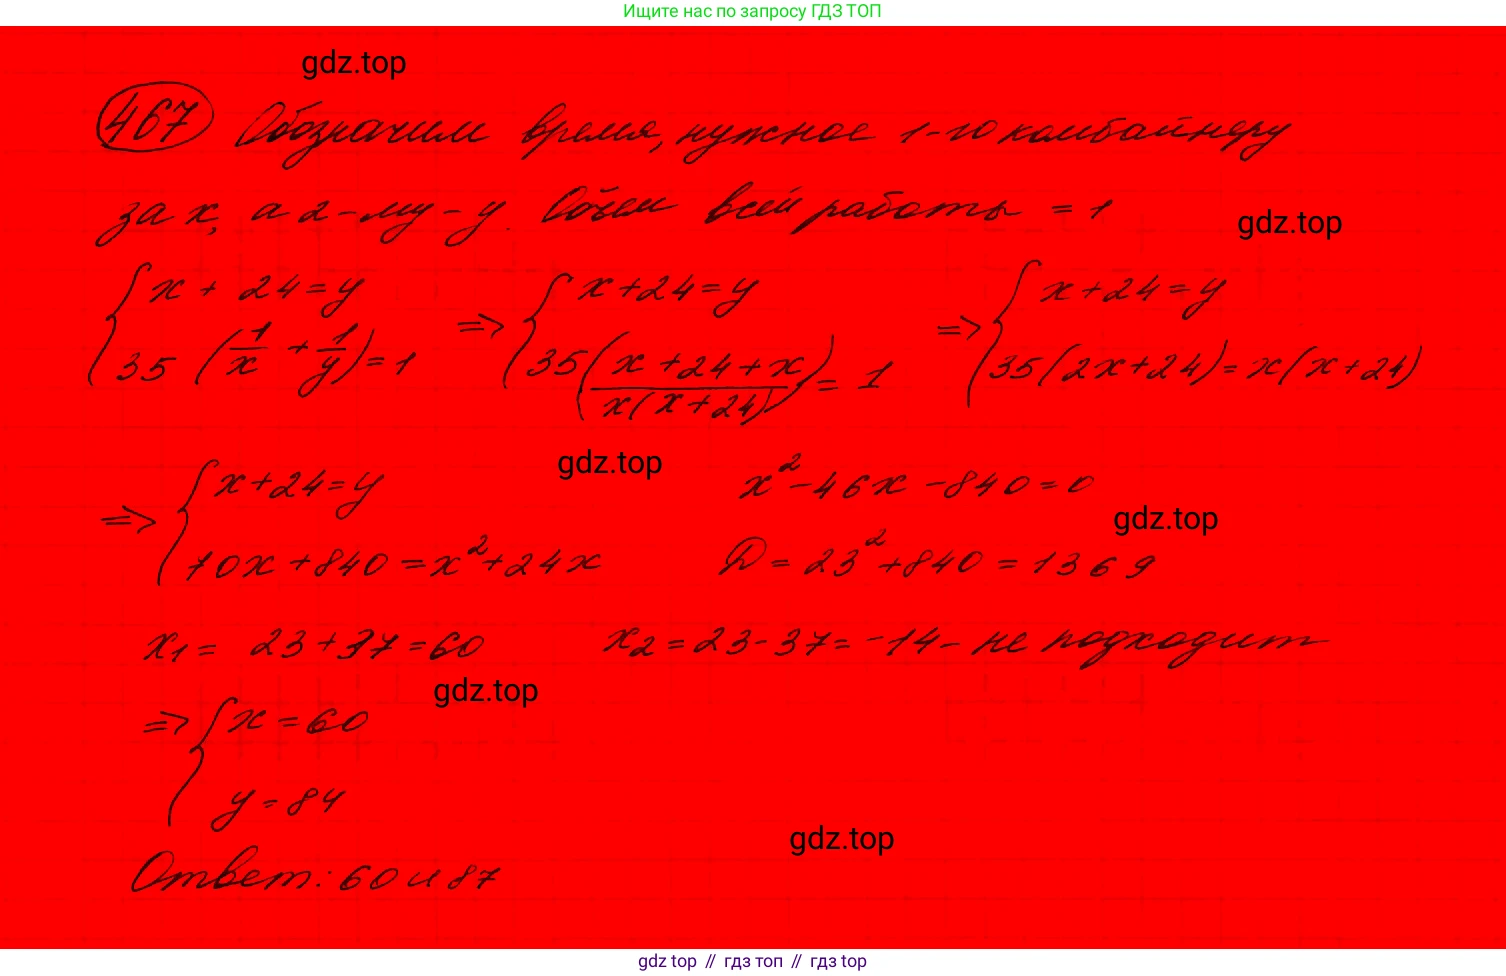 Ищите нас по запросу ГДЗ ТОП
gdz.top
467 Обозначим время, нужное 1-го комбайнеру
за x, а 2-му - y. Объем всей работы = 1
gdz.top
{ x + 24 = y => { x + 24 = y => { x + 24 = y
{ 35 (1/x + 1/y) = 1 { 35 ((x + 24 + x)/(x(x + 24))) = 1 { 35(2x + 24) = x(x + 24)
gdz.top
=> { x + 24 = y x² - 46x - 840 = 0
gdz.top
{ 70x + 840 = x² + 24x D = 23² + 840 = 1369
x₁ = 23 + 37 = 60 x₂ = 23 - 37 = -14 - не подходит
gdz.top
=> { x = 60
{ y = 84
gdz.top
Ответ: 60 и 87
gdz top // гдз топ // гдз top